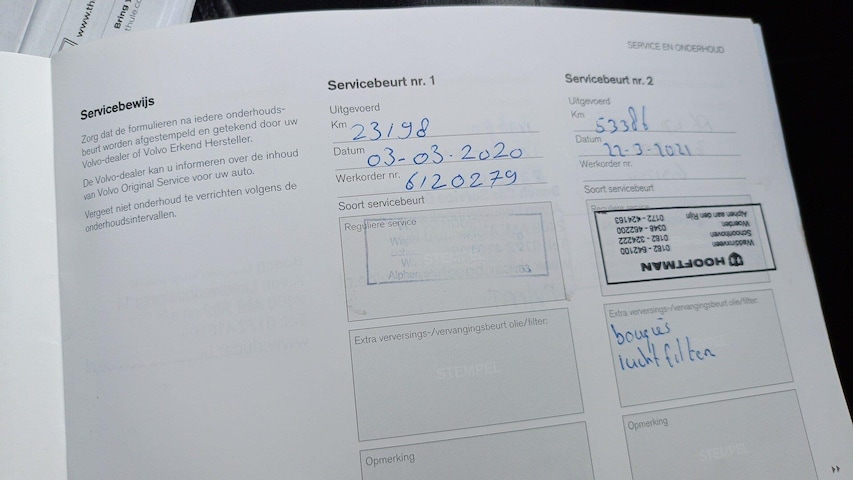 www.th
Bring
thule.co
SERVICE EN ONDERHOUD
Servicebewijs
Zorg dat de formulieren na iedere onderhouds-
beurt worden afgestempeld en getekend door uw
Volvo-dealer of Volvo Erkend Hersteller.
De Volvo-dealer kan u informeren over de inhoud
van Volvo Original Service voor uw auto.
Vergeet niet onderhoud te verrichten volgens de
onderhoudsintervallen.
Servicebeurt nr. 1
Uitgevoerd
Km 23198
Datum 03-03-2020
Werkorder nr. 6120279
Soort servicebeurt
Reguliere service
Alphen
83
Extra verversings-/vervangingsbeurt olie/filter:
STEMPEL
Opmerking
Servicebeurt nr. 2
Uitgevoerd
Km 53386
Datum 22-3-2021
Werkorder nr.
Soort servicebeurt
Reguliere service
HOOFTMAN
Waddinxveen 0182 - 642100
Schoonhoven 0182 - 324222
Woerden 0348 - 462200
Alphen aan den Rijn 0172 - 424163
Extra verversings-/vervangingsbeurt olie/filter:
bougies
luchtfilter
Opmerking
STEMPEL